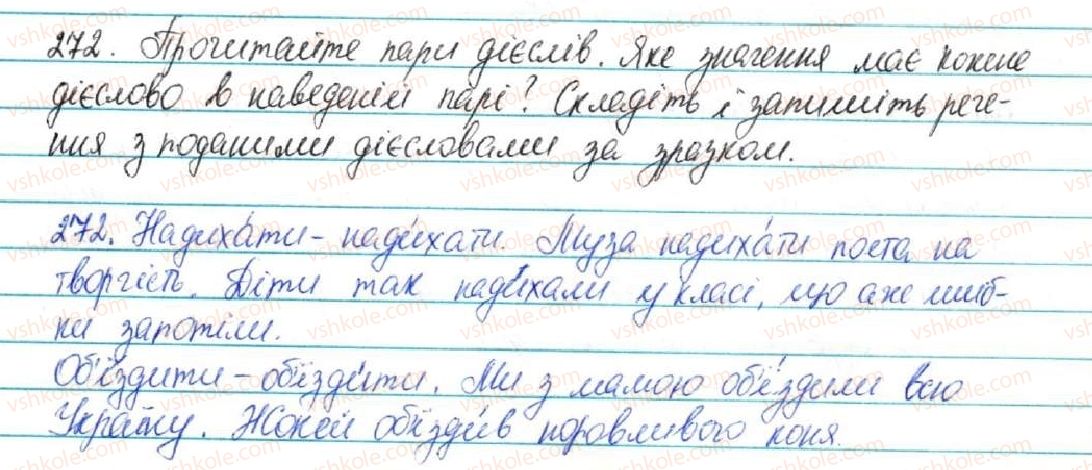 272. Прочитайте пари дієслів. Яке значення має кожне
дієслово в наведеній парі? Складіть і запишіть рече-
ння з поданими дієсловами за зразком.
272. Надиха́ти – нади́хати. Муза надиха́ти поета на
творчість. Діти так нади́хали у класі, що аже шиб-
ки запотіли.
Об'ї́здити – об'їзди́ти. Ми з мамою об'ї́здили всю
Україну. Жокей об'їзди́в норовливого коня.